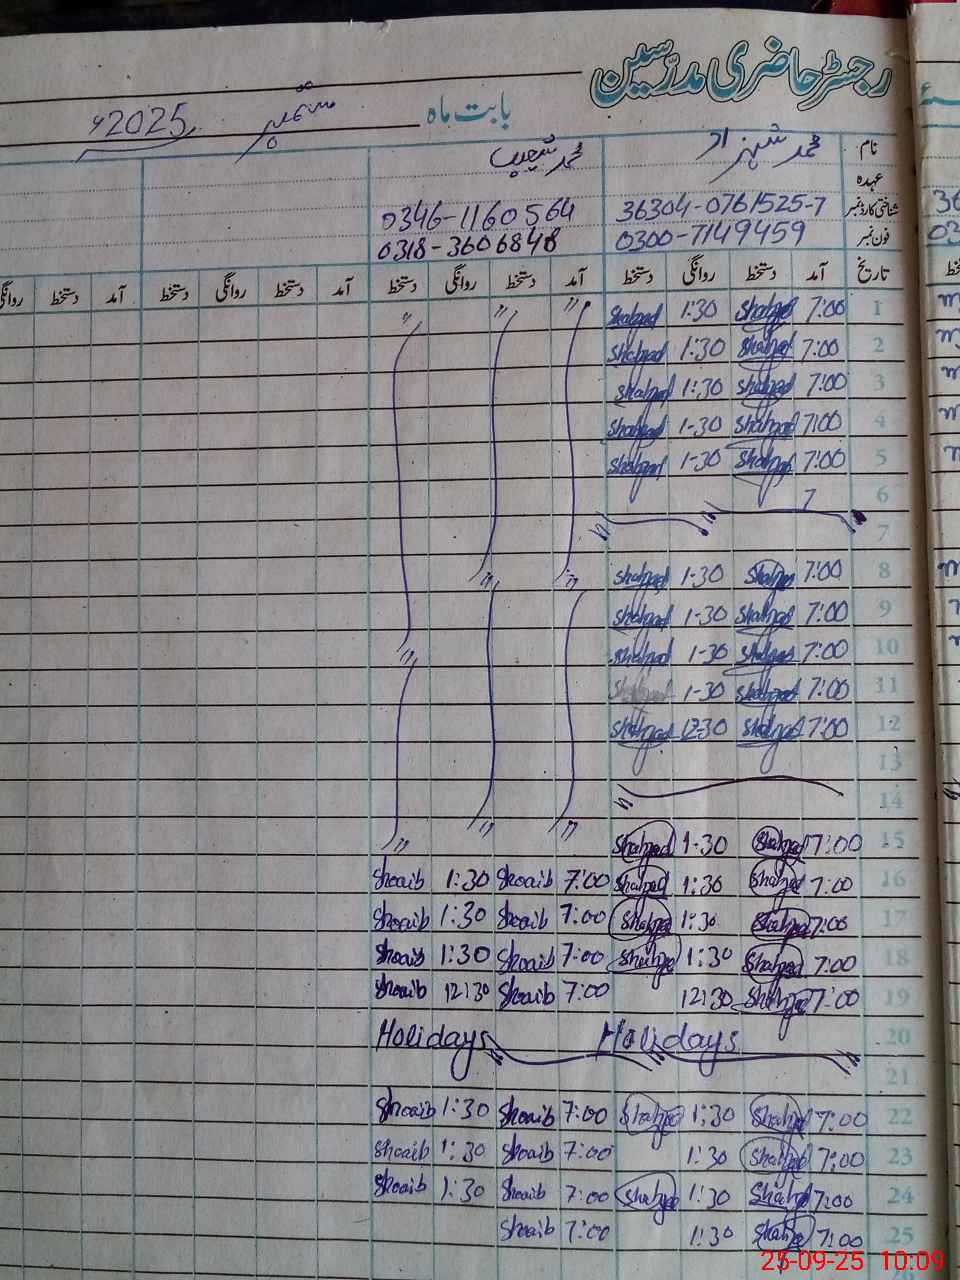 رجسٹر حاضری مدرّسین
بابت ماہ ستمبر 2025ء
نام محمد شہزاد محمد شعیب
عہدہ
شناختی کارڈ نمبر 36304-0761525-7 0346-1160564
فون نمبر 0300-7149459 0318-3606848
تاریخ آمد دستخط روانگی دستخط آمد دستخط روانگی دستخط آمد دستخط روانگی دستخط آمد دستخط روانگی
1 7:00 Shahzad 1:30 Shahzad
2 7:00 Shahzad 1:30 Shahzad
3 7:00 Shahzad 1:30 Shahzad
4 7:00 Shahzad 1-30 Shahzad
5 7:00 Shahzad 1-30 Shahzad
6 7
7
8 7:00 Shahzad 1-30 Shahzad
9 7:00 Shahzad 1-30 Shahzad
10 7:00 Shahzad 1-30 Shahzad
11 7:00 Shahzad 1-30 Shahzad
12 7:00 Shahzad 12-30 Shahzad
13
14
15 7:00 Shahzad 1-30 Shahzad
16 7:00 Shahzad 1:30 Shahzad 7:00 Shoaib 1:30 Shoaib
17 7:00 Shahzad 1:30 Shahzad 7:00 Shoaib 1:30 Shoaib
18 7:00 Shahzad 1:30 Shahzad 7:00 Shoaib 1:30 Shoaib
19 7:00 Shahzad 12:30 7:00 Shoaib 12:30 Shoaib
20 Holidays Holidays
21
22 7:00 Shahzad 1:30 Shahzad 7:00 Shoaib 1:30 Shoaib
23 7:00 Shahzad 1:30 7:00 Shoaib 1:30 Shoaib
24 7:00 Shahzad 1:30 Shahzad 7:00 Shoaib 1:30 Shoaib
25 7:00 Shahzad 1:30 7:00 Shoaib
25-09-25 10:09